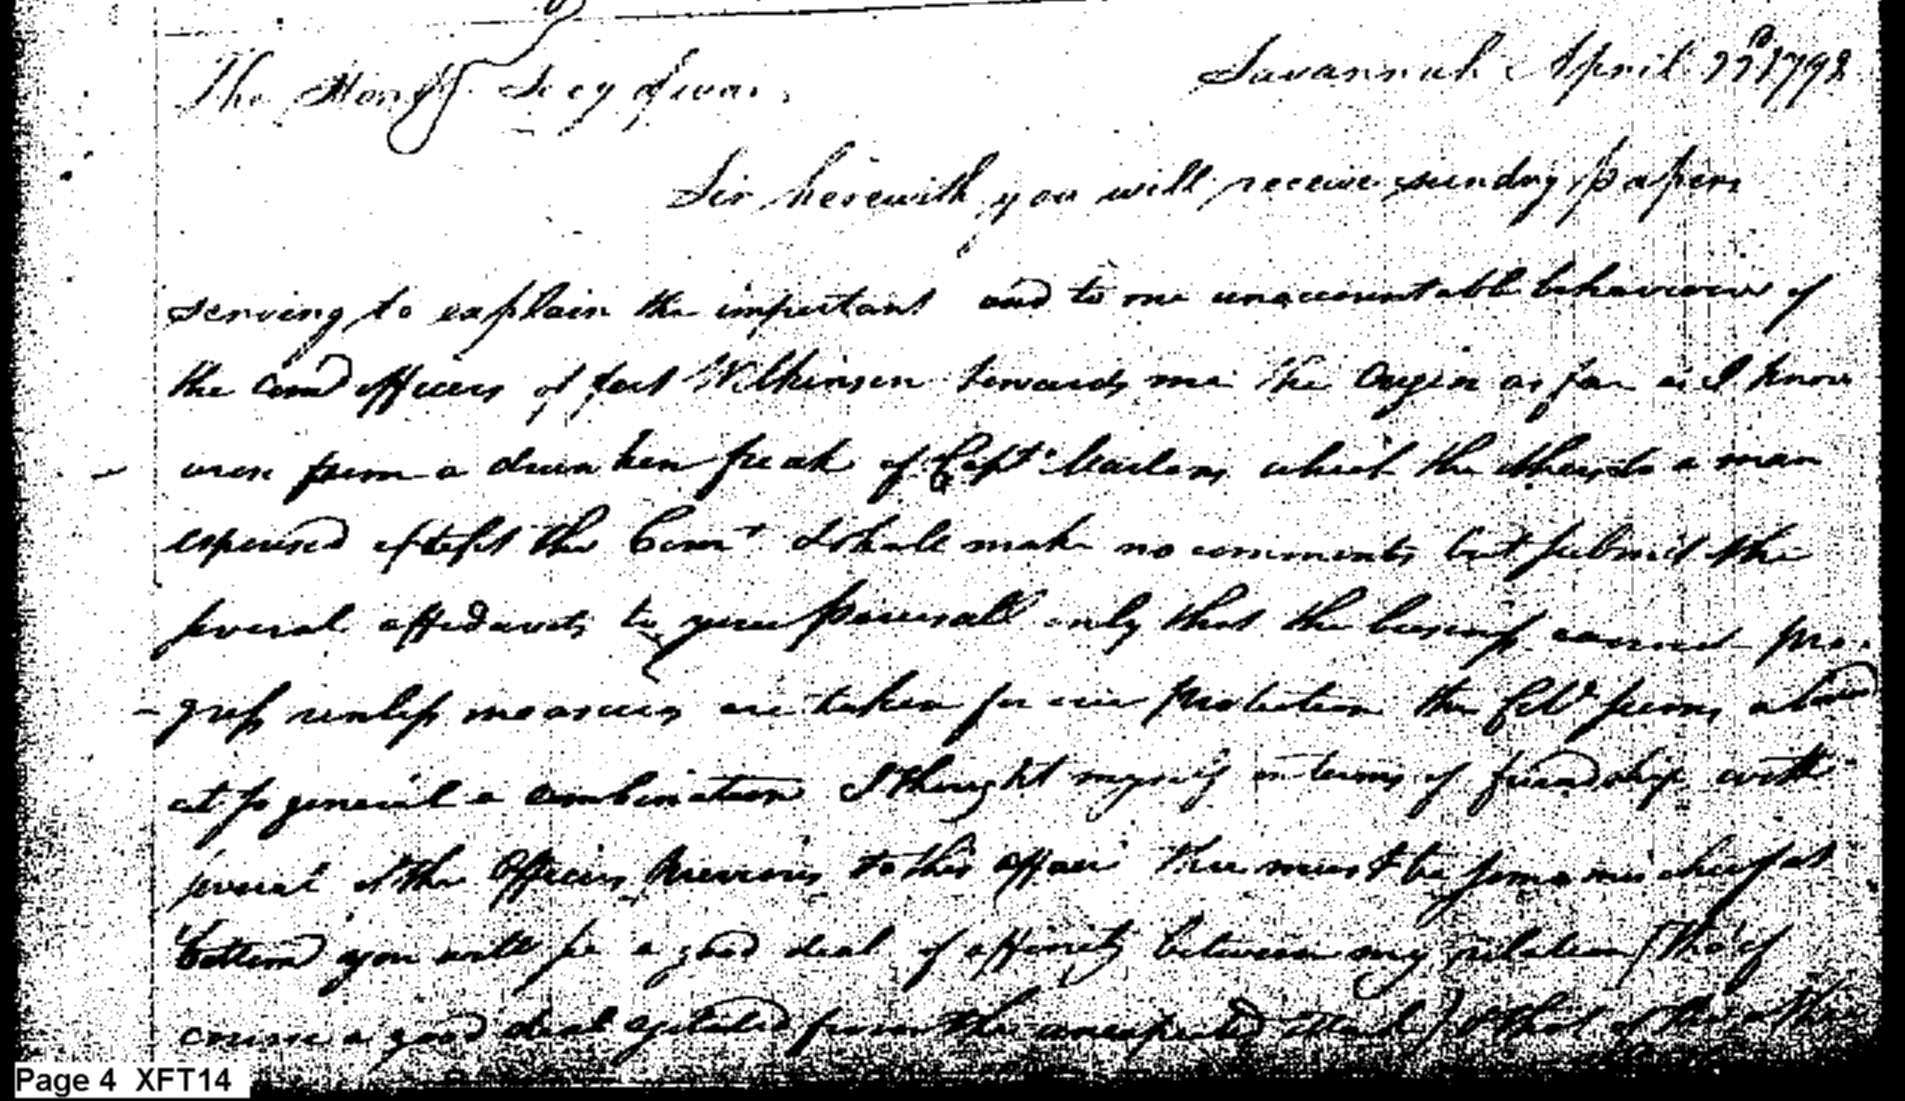 The Hon. Secy of war. Savannah April 22d 1798
Sir herewith you will receive sundry papers
serving to explain the important and to me unaccountable behaviour of
the Comd officers of fort Wilkinson towards me the Origin as far as I know
arose from a drunken freak of Capt. which the others to a man
espoused I shall make no comments but submit the
several affidavits to your perusall only that the business cannot pro-
-gress unless measures are taken for our protection the
at so general a combination I thought myself on terms of friendship with
several of the Officers previous to this affair there must be some mischief at
bottom you will see a good deal of affinity between my relation (tho of
course a good deal agitated from the unexpected attack) & that of the
Page 4 XFT14